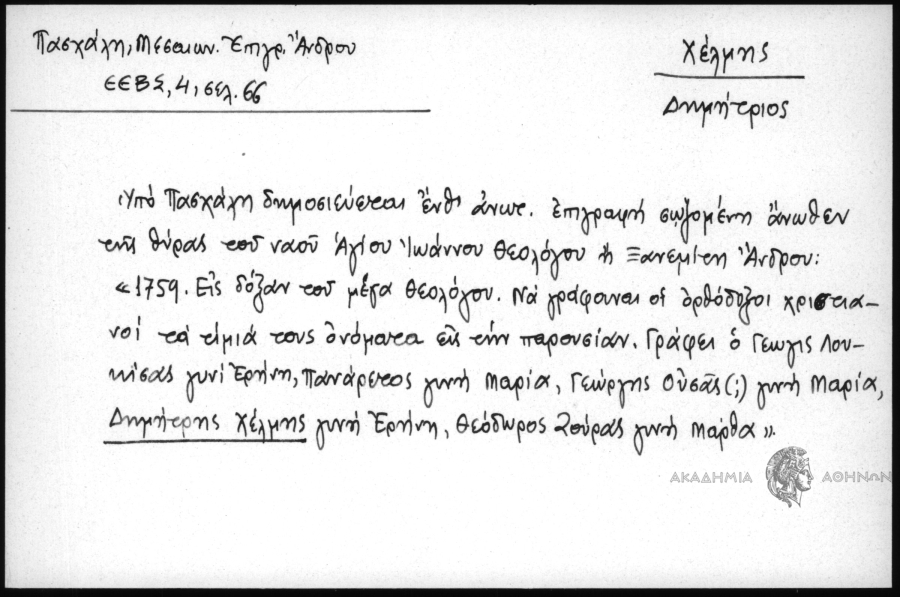 Πασχάλη, Μεσαιων. Ἐπιγρ. Ἄνδρου
ΕΕΒΣ, 4, σελ. 66
Χέλμης
Δημήτριος
Ὑπό Πασχάλη δημοσιεύεται ἔνθ' ἀνωτ. ἐπιγραφή σῳζομένη ἄνωθεν
τῆς θύρας τοῦ ναοῦ Ἁγίου Ἰωάννου Θεολόγου ἤ Ξανεμίτη Ἄνδρου:
« 1759. Εἰς δόξαν τοῦ μέγα Θεολόγου. Νά γράφουνται οἱ ὀρθόδοξοι χριστια-
νοί τά τίμιά τους ὀνόματα εἰς τήν παρουσίαν. Γράφει ὁ Γεωγις Λου-
κίσας γυνί Ἐρήνη, Πανάρετος γυνή Μαρία, Γεώργης Οὐσᾶς (;) γυνή Μαρία,
Δημήτρης Χέλμης γυνή Ἐρήνη, Θεόδωρος Σούρας γυνή Μάρθα ».
ΑΚΑΔΗΜΙΑ ΑΘΗΝΩΝ